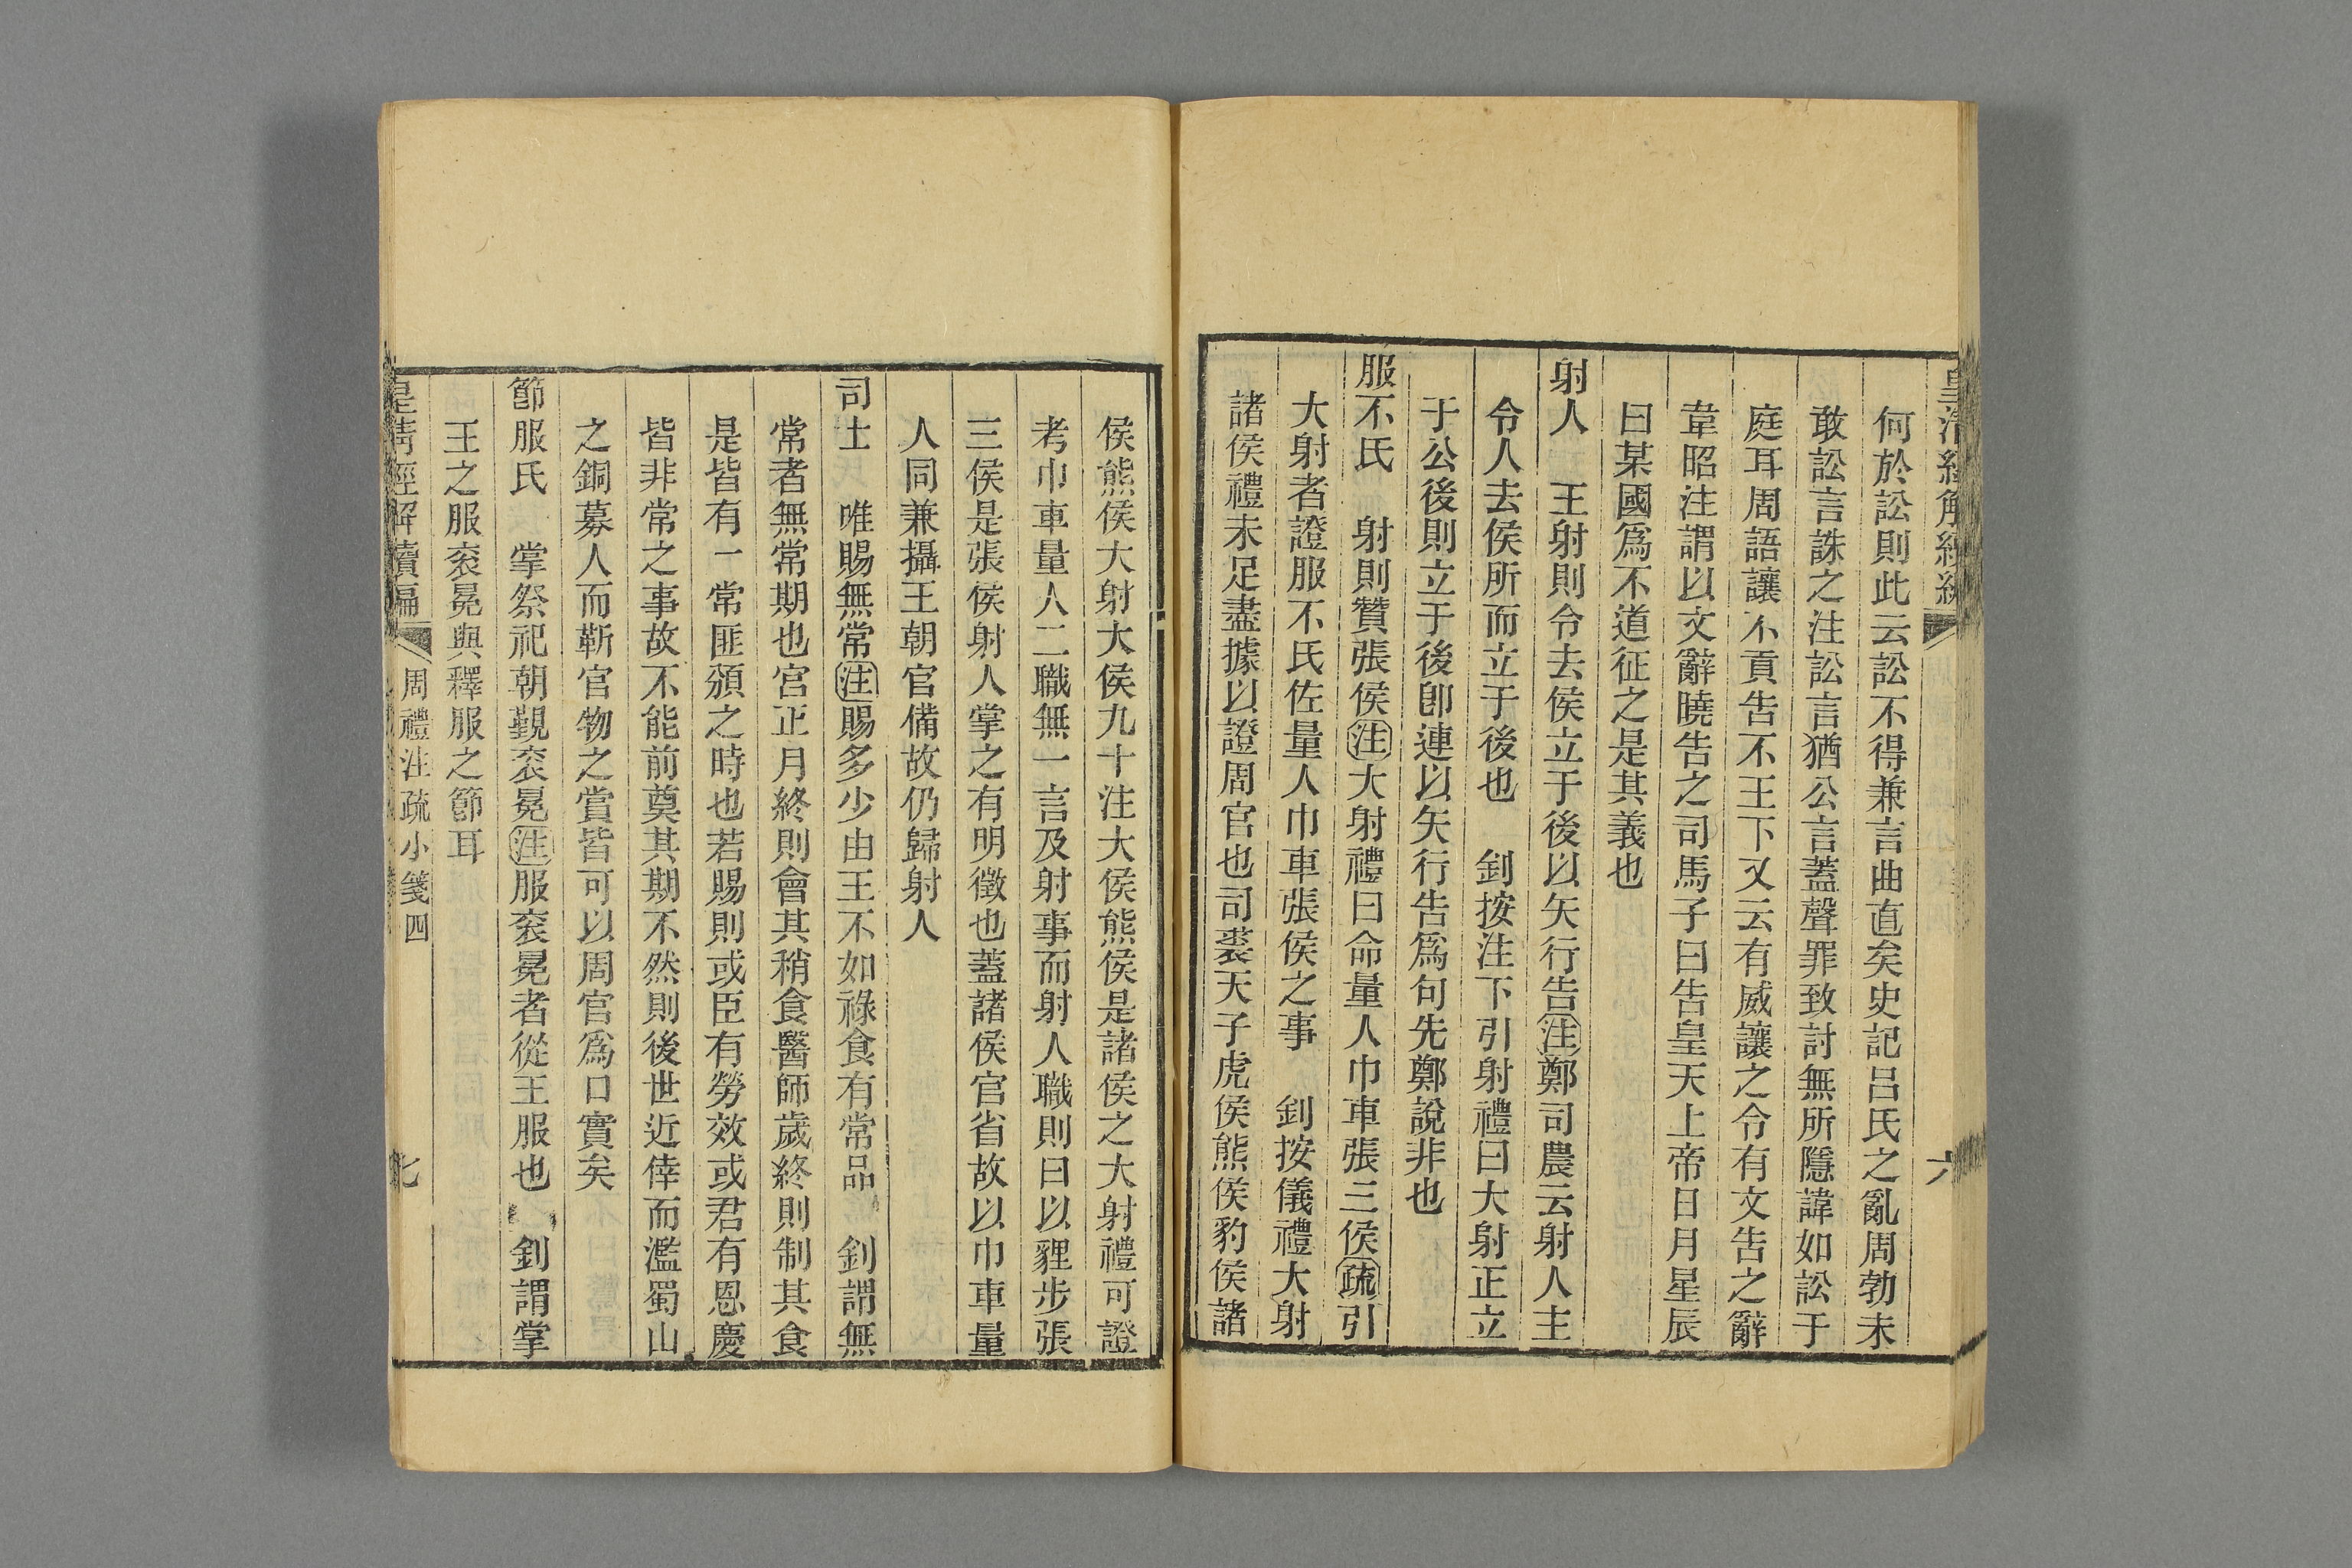 皇清經解續編
六
何於訟則此云訟不得兼言曲直矣史記呂氏之亂周勃未
敢訟言誅之注訟言猶公言蓋聲罪致討無所隱諱如訟于
庭耳周語讓不貢告不王下又云有威讓之令有文告之辭
韋昭注謂以文辭曉告之司馬子曰告皇天上帝日月星辰
曰某國爲不道征之是其義也
射人　王射則令去侯立于後以矢行告注鄭司農云射人主
令人去侯所而立于後也　釗按注下引射禮曰大射正立
于公後則立于後卽連以矢行告爲句先鄭說非也
服不氏　射則贊張侯注大射禮曰命量人巾車張三侯疏引
大射者證服不氏佐量人巾車張侯之事　釗按儀禮大射
諸侯禮未足盡據以證周官也司裘天子虎侯熊侯豹侯諸
侯熊侯大射大侯九十注大侯熊侯是諸侯之大射禮可證
考巾車量人二職無一言及射事而射人職則曰以貍步張
三侯是張侯射人掌之有明徵也蓋諸侯官省故以巾車量
人同兼攝王朝官備故仍歸射人
司士　唯賜無常注賜多少由王不如祿食有常品　釗謂無
常者無常期也宮正月終則會其稍食醫師歲終則制其食
是皆有一常匪頒之時也若賜則或臣有勞效或君有恩慶
皆非常之事故不能前奠其期不然則後世近倖而濫蜀山
之銅募人而靳官物之賞皆可以周官爲口實矣
節服氏　掌祭祀朝覲袞冕注服袞冕者從王服也　釗謂掌
王之服袞冕與釋服之節耳
皇清經解續編
周禮注疏小箋四
七